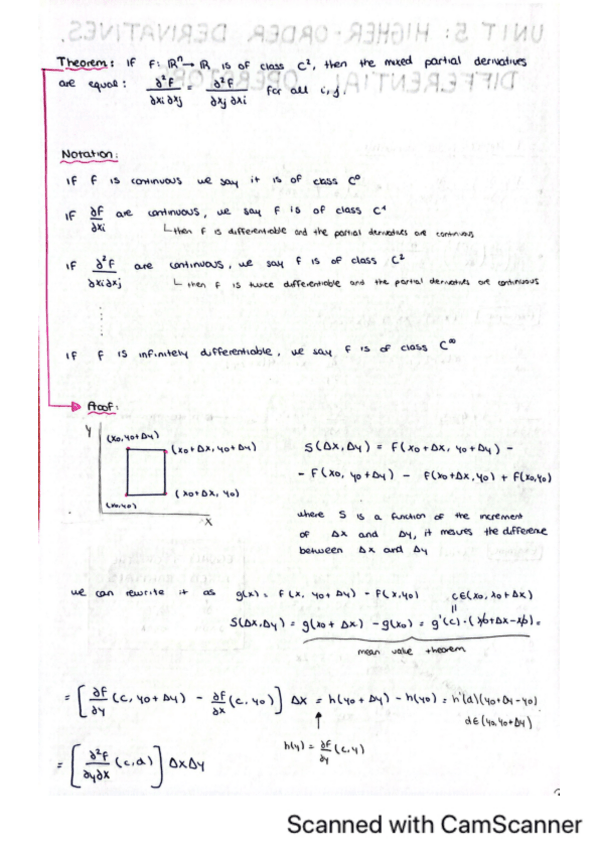 Theorem: If F: ℝⁿ → ℝ is of class C², then the mixed partial derivatives
are equal: ∂²F/∂xi∂xj = ∂²F/∂xj∂xi for all i, j.
Notation:
If F is continuous we say it is of class C⁰
If ∂F/∂xi are continuous, we say F is of class C¹
then F is differentiable and the partial derivatives are continuous
If ∂²F/∂xi∂xj are continuous, we say F is of class C²
then F is twice differentiable and the partial derivatives are continuous
If F is infinitely differentiable, we say F is of class C^∞
Proof:
Y
(x0, y0+Δy)
(x0+Δx, y0+Δy)
(x0+Δx, y0)
(x0,y0)
X
S(Δx, Δy) = F(x0+Δx, y0+Δy) -
- F(x0, y0+Δy) - F(x0+Δx, y0) + F(x0,y0)
where S is a function of the increment
of Δx and Δy, it mesures the difference
between Δx and Δy
we can rewrite it as g(x) = F(x, y0+Δy) - F(x,y0) c∈(x0, x0+Δx)
S(Δx,Δy) = g(x0+Δx) - g(x0) = g'(c)·(x0+Δx-x0) =
mean value theorem
= [∂F/∂y (c, y0+Δy) - ∂F/∂x (c, y0)] Δx = h(y0+Δy) - h(y0) = h'(d)(y0+Δy-y0)
d∈(y0, y0+Δy)
h(y) = ∂F/∂y (c,y)
= [∂²F/∂y∂x (c,d)] ΔxΔy
Scanned with CamScanner